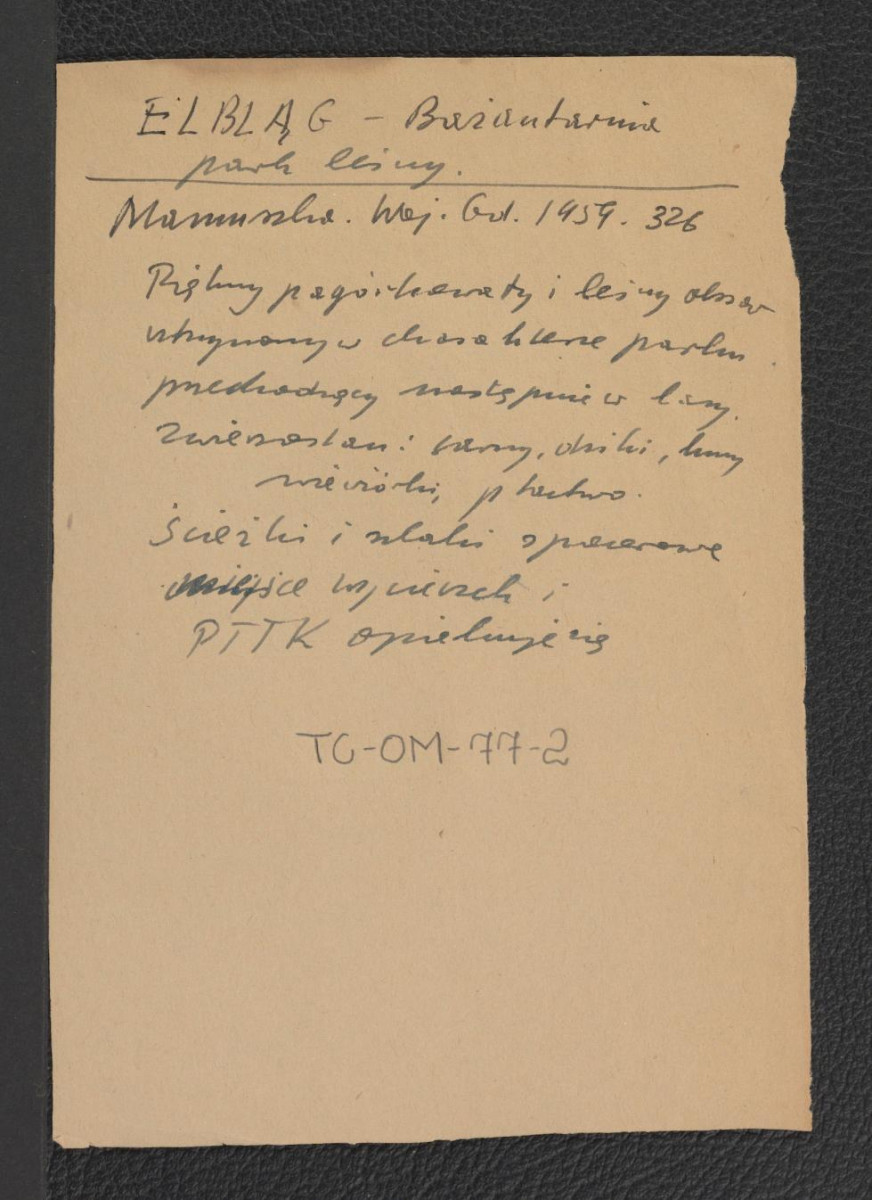 ELBLĄG - Bażantarnia
park leśny.
Mamuszka. Woj. Gd. 1959. 326
Piękny pagórkowaty i leśny obszar
utrzymany w charakterze parku
przechodzący następnie w lasy.
Zwierzostan: sarny, dziki, kuny
wiewiórki, ptactwo.
Ścieżki i szlaki spacerowe
miejsce wycieczek i
PTTK opiekuje się
TC-OM-77-2